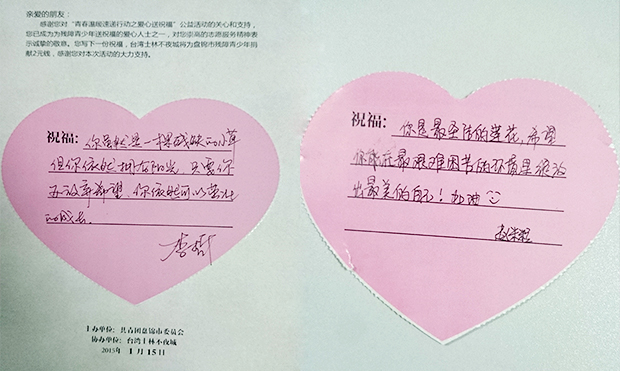 亲爱的朋友：
感谢您对“青春温暖速送行动之爱心送祝福”公益活动的关心和支持，
您已成为为残障青少年送祝福的爱心人士之一，对您崇高的志愿服务精神表
示诚挚的敬意。您写下一份祝福，台湾士林不夜城将为盘锦市残障青少年捐
献2元钱，感谢您对本次活动的大力支持。
祝福：你虽然是一棵残缺的小草
但你依然拥有阳光，只要你
不放弃希望，你依然可以茁壮
的成长。
主办单位：共青团盘锦市委员会
协办单位：台湾士林不夜城
2015年 1 月 15 日
祝福：你是最圣洁的莲花，希望
你能在最艰难困苦的环境里绽放
出最美的自己！加油